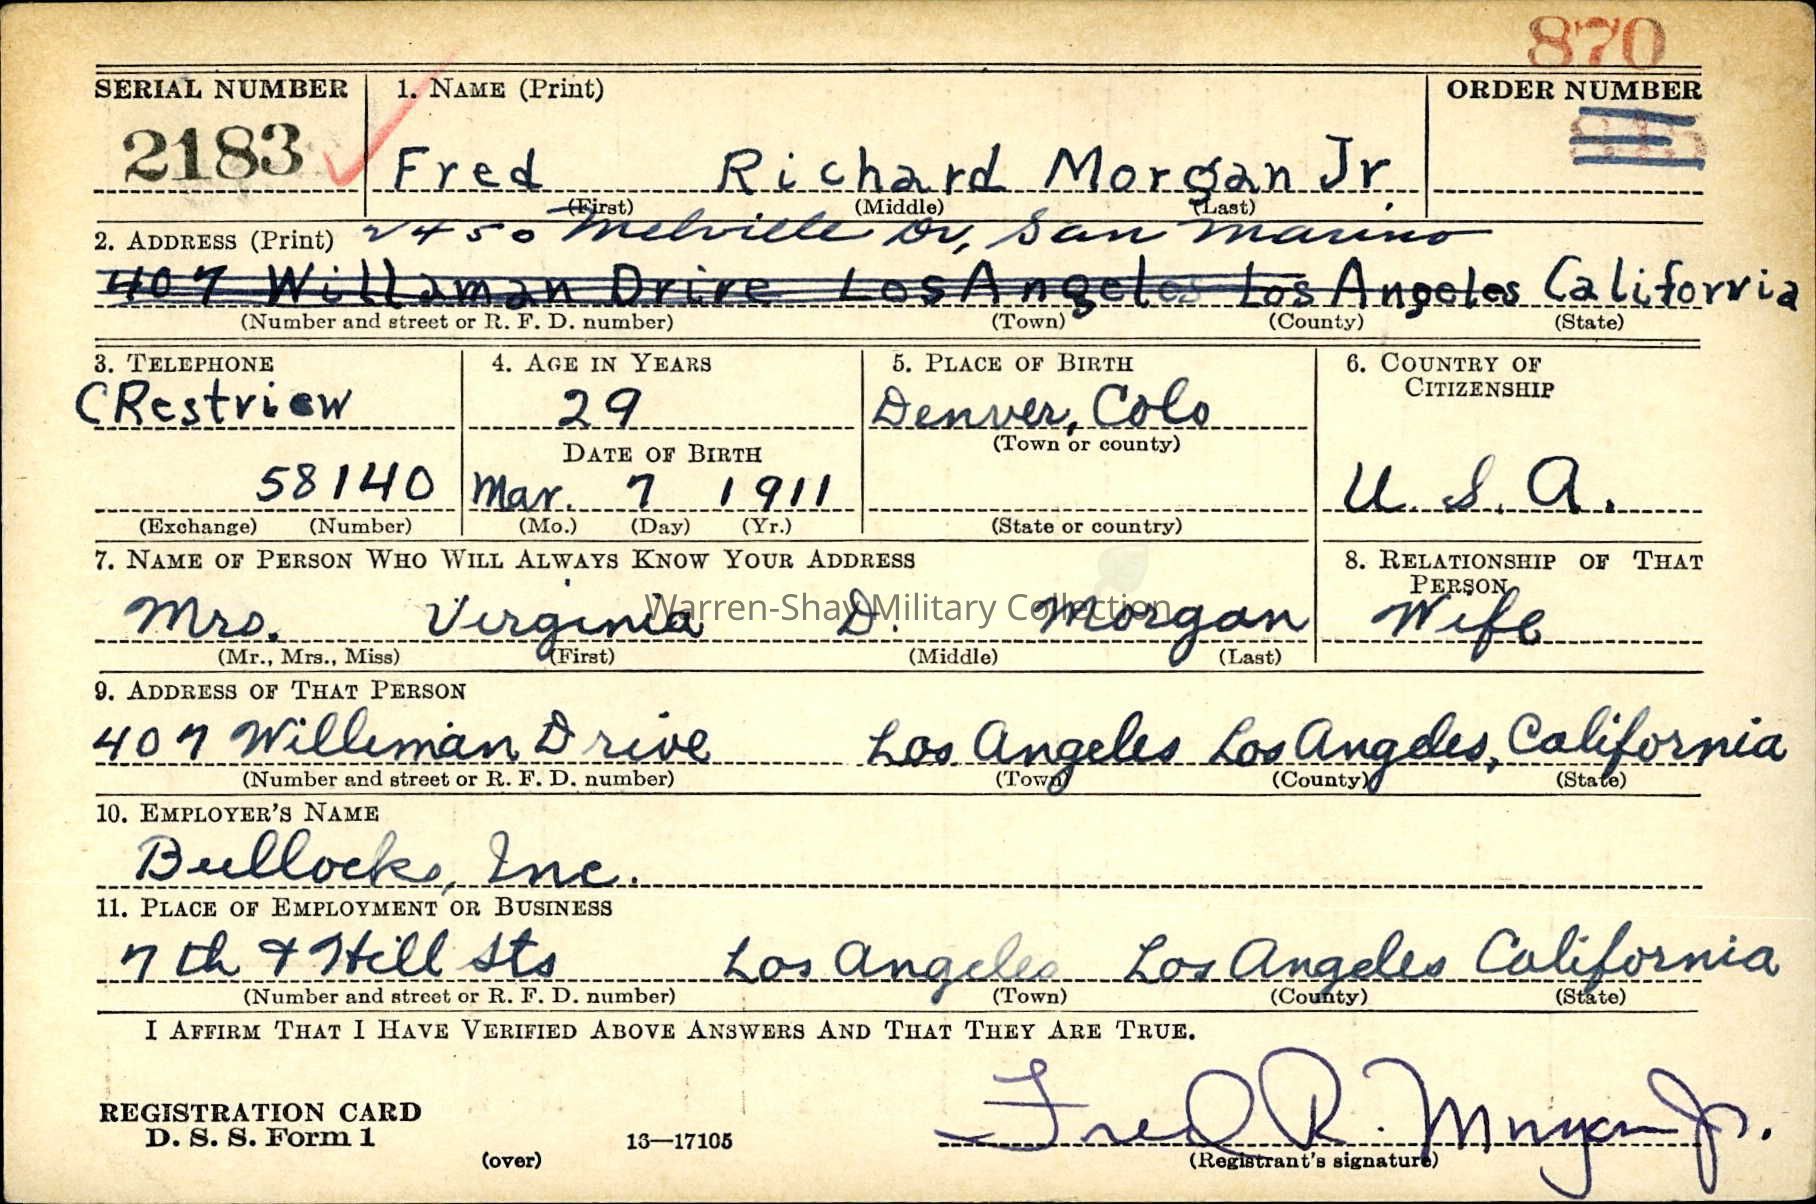 870
SERIAL NUMBER
1. NAME (Print)
ORDER NUMBER
2183
Fred Richard Morgan Jr.
(First) (Middle) (Last)
2. ADDRESS (Print) 2450 Melville Dr, San Marino
407 Willaman Drive Los Angeles Los Angeles California
(Number and street or R. F. D. number) (Town) (County) (State)
3. TELEPHONE
4. AGE IN YEARS
5. PLACE OF BIRTH
6. COUNTRY OF
CITIZENSHIP
CRestview
29
Denver, Colo
(Town or county)
DATE OF BIRTH
58140
Mar. 7 1911
U. S. A.
(Exchange) (Number)
(Mo.) (Day) (Yr.)
(State or country)
7. NAME OF PERSON WHO WILL ALWAYS KNOW YOUR ADDRESS
8. RELATIONSHIP OF THAT
PERSON
Warren-Shay Military Collection
Mrs. Virginia D. Morgan
Wife
(Mr., Mrs., Miss) (First) (Middle) (Last)
9. ADDRESS OF THAT PERSON
407 Willeman Drive Los Angeles Los Angeles, California
(Number and street or R. F. D. number) (Town) (County) (State)
10. EMPLOYER'S NAME
Bullocks, Inc.
11. PLACE OF EMPLOYMENT OR BUSINESS
7th & Hill Sts Los Angeles Los Angeles California
(Number and street or R. F. D. number) (Town) (County) (State)
I AFFIRM THAT I HAVE VERIFIED ABOVE ANSWERS AND THAT THEY ARE TRUE.
REGISTRATION CARD
D. S. S. Form 1
(over)
16—17105
Fred R. Morgan Jr.
(Registrant's signature)